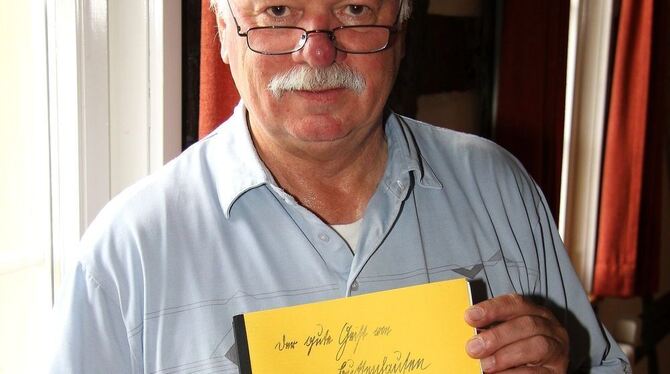 Der gute Geist von
Buttenhausen